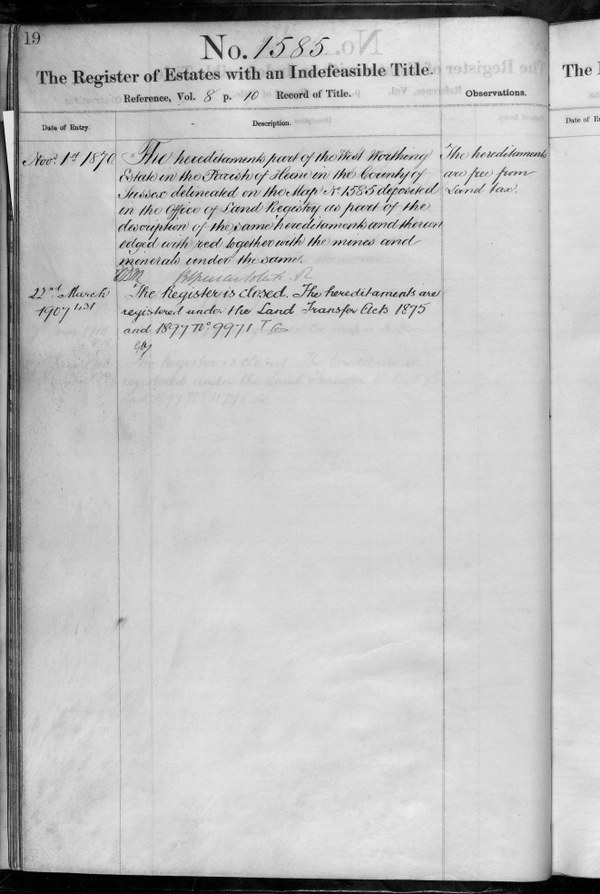 19
No. 1585
The Register of Estates with an Indefeasible Title.
Reference, Vol. 8 p. 10 Record of Title.
Observations.
Date of Entry.
Description.
Novr. 1st 1870
The hereditaments part of the West Worthing
Estate in the Parish of Heene in the County of
Sussex delineated on the Map No. 1585 deposited
in the Office of Land Registry as part of the
description of the same hereditaments and thereon
edged with red together with the mines and
minerals under the same.
The hereditaments
are free from
Land tax.
22nd March
1907
The Register is closed. The hereditaments are
registered under the Land Transfer Acts 1875
and 1897 No. 9971
The
Date of E